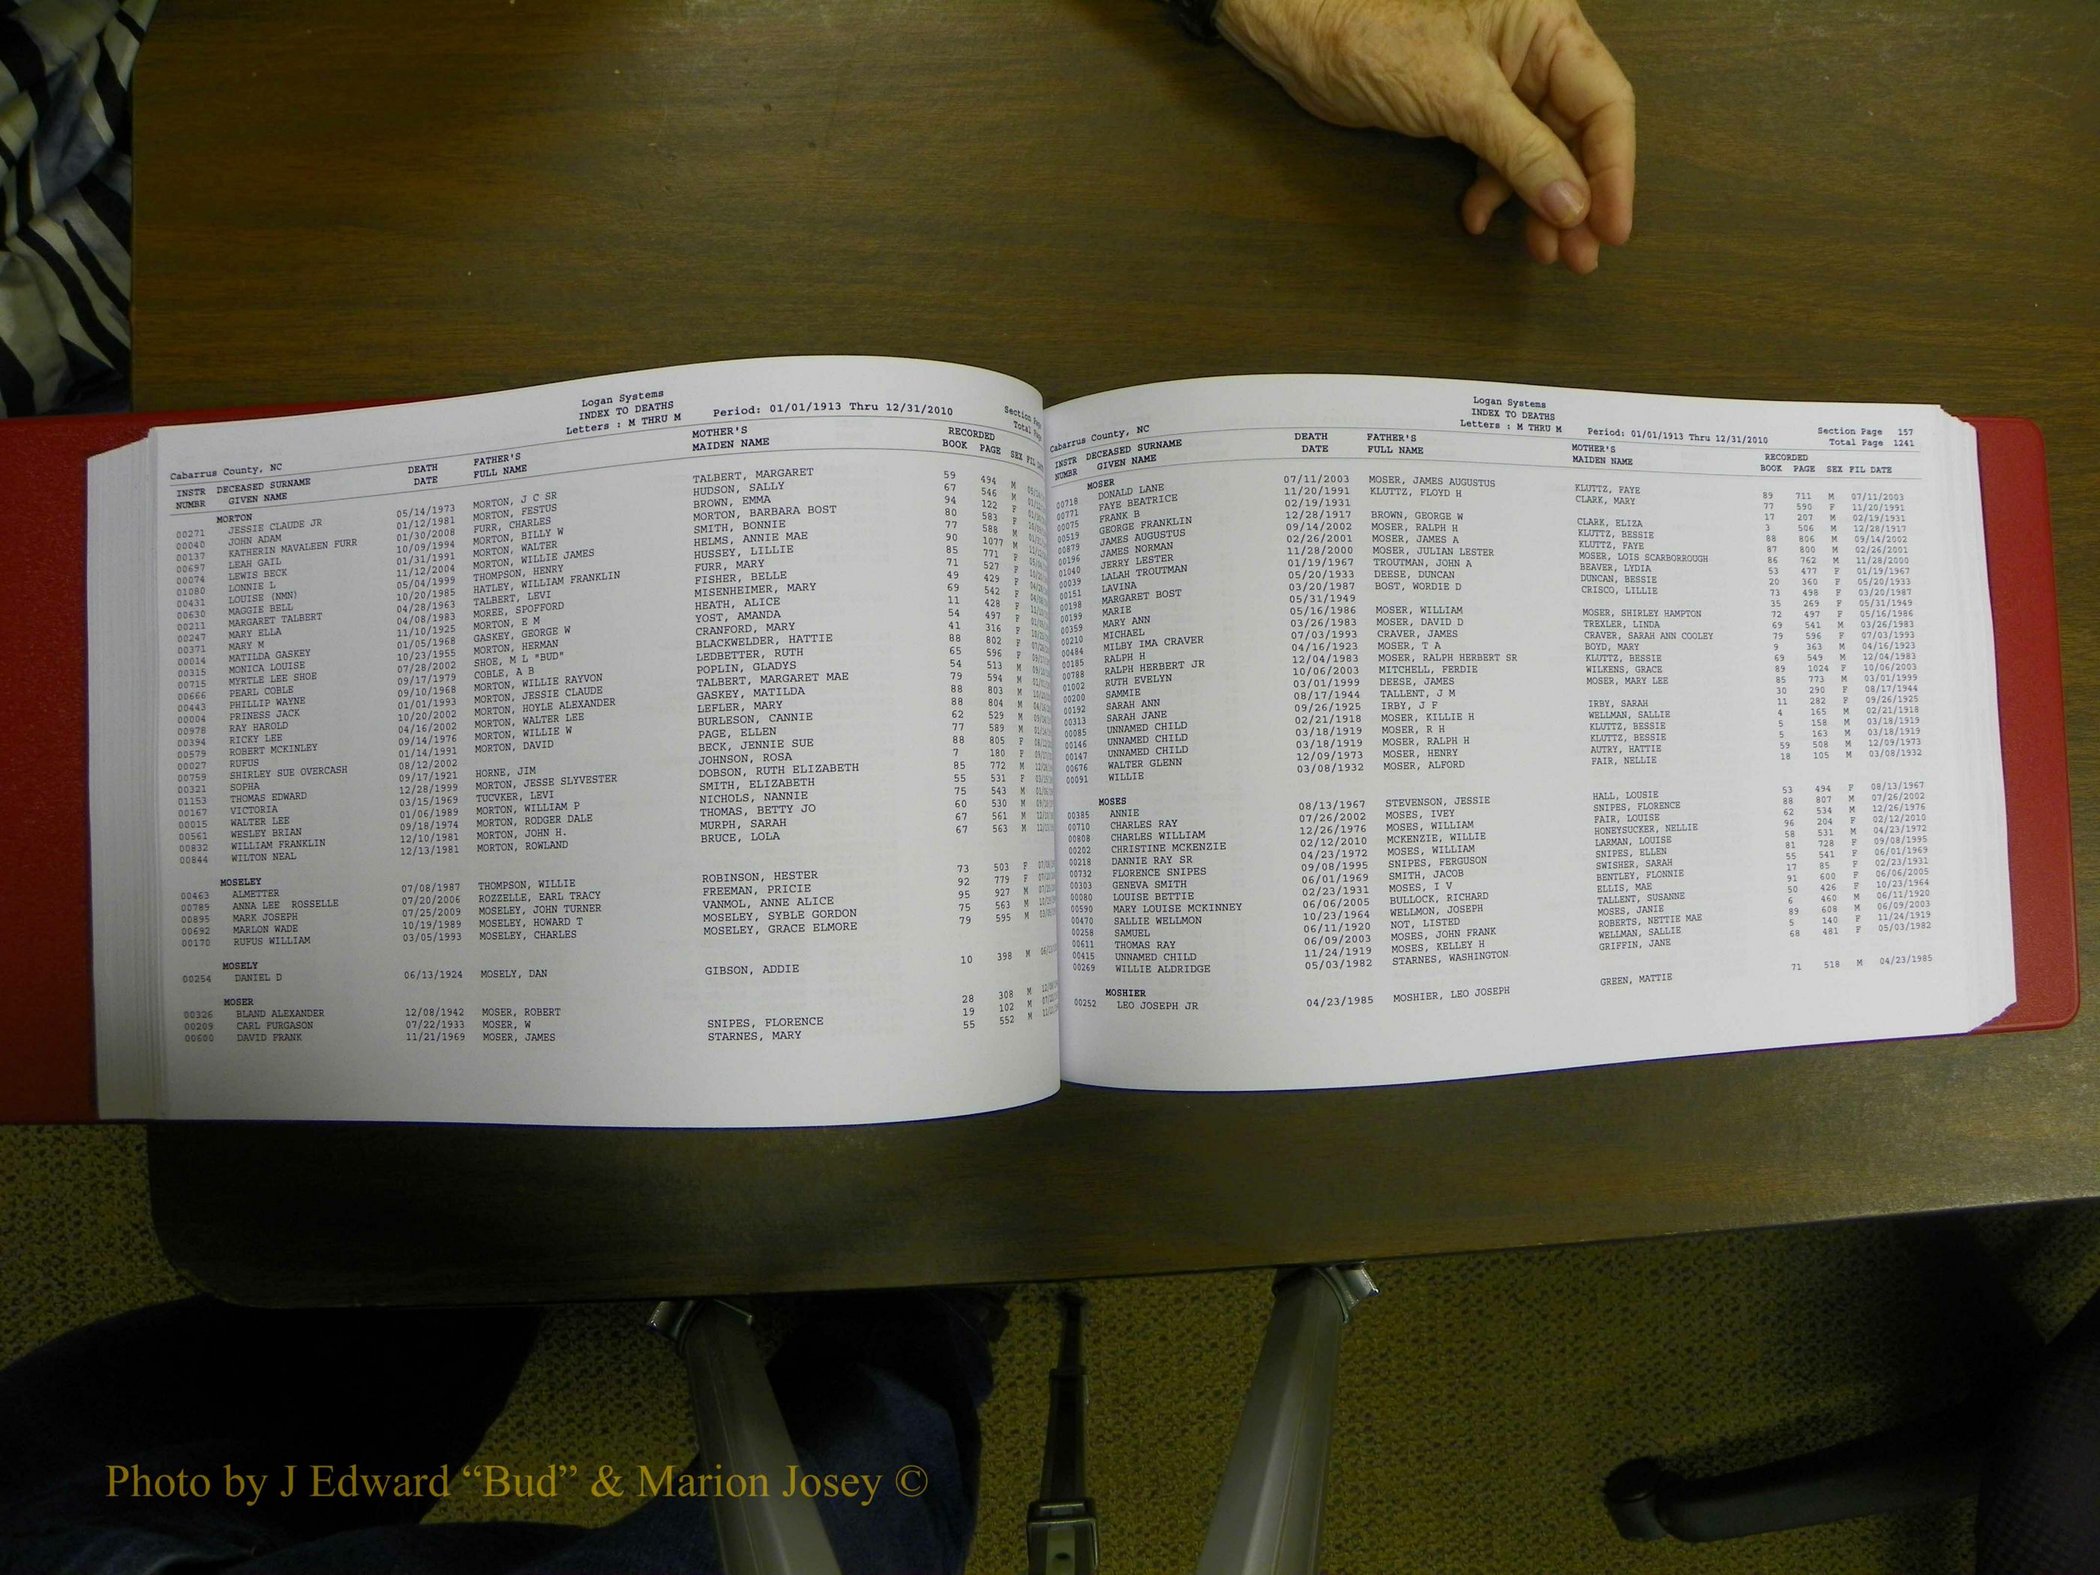 Logan Systems
INDEX TO DEATHS
Letters : M THRU M Period: 01/01/1913 Thru 12/31/2010
Cabarrus County, NC
INSTR DECEASED SURNAME DEATH FATHER'S MOTHER'S RECORDED
NUMBR GIVEN NAME DATE FULL NAME MAIDEN NAME BOOK PAGE SEX FIL DATE
MORTON
00271 JESSIE CLAUDE JR 05/14/1973 MORTON, J C SR TALBERT, MARGARET 59 494 M
00040 JOHN ADAM 01/12/1981 MORTON, FESTUS HUDSON, SALLY 67 546 M
00137 KATHERIN MAVALEEN FURR 01/30/2008 FURR, CHARLES BROWN, EMMA 94 122 F
00697 LEAH GAIL 10/09/1994 MORTON, BILLY W MORTON, BARBARA BOST 80 583 F
00074 LEWIS BECK 01/31/1991 MORTON, WALTER SMITH, BONNIE 77 588 M
01080 LONNIE L 11/12/2004 MORTON, WILLIE JAMES HELMS, ANNIE MAE 90 1077 M
00431 LOUISE (NMN) 05/04/1999 THOMPSON, HENRY HUSSEY, LILLIE 85 771 F
00630 MAGGIE BELL 10/20/1985 HATLEY, WILLIAM FRANKLIN FURR, MARY 71 527 F
00211 MARGARET TALBERT 04/28/1963 TALBERT, LEVI FISHER, BELLE 49 429 F
00247 MARY ELLA 04/08/1983 MOREE, SPOFFORD MISENHEIMER, MARY 69 542 F
00371 MARY M 11/10/1925 MORTON, E M HEATH, ALICE 11 428 F
00014 MATILDA GASKEY 01/05/1968 GASKEY, GEORGE W YOST, AMANDA 54 497 F
00315 MONICA LOUISE 10/23/1955 MORTON, HERMAN CRANFORD, MARY 41 316 F
00715 MYRTLE LEE SHOE 07/28/2002 SHOE, M L "BUD" BLACKWELDER, HATTIE 88 802 F
00666 PEARL COBLE 09/17/1979 COBLE, A B LEDBETTER, RUTH 65 596 F
00443 PHILLIP WAYNE 09/10/1968 MORTON, WILLIE RAYVON POPLIN, GLADYS 54 513 M
00004 PRINESS JACK 01/01/1993 MORTON, JESSIE CLAUDE TALBERT, MARGARET MAE 79 594 M
00978 RAY HAROLD 10/20/2002 MORTON, HOYLE ALEXANDER GASKEY, MATILDA 88 803 M
00394 RICKY LEE 04/16/2002 MORTON, WALTER LEE LEFLER, MARY 88 804 M
00579 ROBERT MCKINLEY 09/14/1976 MORTON, WILLIE W BURLESON, CANNIE 62 529 M
00027 RUFUS 01/14/1991 MORTON, DAVID PAGE, ELLEN 77 589 M
00759 SHIRLEY SUE OVERCASH 08/12/2002 BECK, JENNIE SUE 88 805 F
00321 SOPHA 09/17/1921 HORNE, JIM JOHNSON, ROSA 7 180 F
01153 THOMAS EDWARD 12/28/1999 MORTON, JESSE SLYVESTER DOBSON, RUTH ELIZABETH 85 772 M
00167 VICTORIA 03/15/1969 TUCVKER, LEVI SMITH, ELIZABETH 55 531 F
00015 WALTER LEE 01/06/1989 MORTON, WILLIAM P NICHOLS, NANNIE 75 543 M
00561 WESLEY BRIAN 09/18/1974 MORTON, RODGER DALE THOMAS, BETTY JO 60 530 M
00832 WILLIAM FRANKLIN 12/10/1981 MORTON, JOHN H. MURPH, SARAH 67 561 M
00844 WILTON NEAL 12/13/1981 MORTON, ROWLAND BRUCE, LOLA 67 563 M
MOSELEY
00463 ALMETTER 07/08/1987 THOMPSON, WILLIE ROBINSON, HESTER 73 503 F
00789 ANNA LEE ROSSELLE 07/20/2006 ROZZELLE, EARL TRACY FREEMAN, PRICIE 92 779 F
00895 MARK JOSEPH 07/25/2009 MOSELEY, JOHN TURNER VANMOL, ANNE ALICE 95 927 M
00692 MARLON WADE 10/19/1989 MOSELEY, HOWARD T MOSELEY, SYBLE GORDON 75 563 M
00170 RUFUS WILLIAM 03/05/1993 MOSELEY, CHARLES MOSELEY, GRACE ELMORE 79 595 M
MOSELY
00254 DANIEL D 06/13/1924 MOSELY, DAN GIBSON, ADDIE 10 398 M
MOSER
00326 BLAND ALEXANDER 12/08/1942 MOSER, ROBERT 28 308 M
00209 CARL FURGASON 07/22/1933 MOSER, W SNIPES, FLORENCE 19 102 M
00600 DAVID FRANK 11/21/1969 MOSER, JAMES STARNES, MARY 55 552 M
Logan Systems
INDEX TO DEATHS
Letters : M THRU M Period: 01/01/1913 Thru 12/31/2010
Cabarrus County, NC Section Page 157
Total Page 1241
INSTR DECEASED SURNAME DEATH FATHER'S MOTHER'S RECORDED
NUMBR GIVEN NAME DATE FULL NAME MAIDEN NAME BOOK PAGE SEX FIL DATE
MOSER
00718 DONALD LANE 07/11/2003 MOSER, JAMES AUGUSTUS KLUTTZ, FAYE 89 711 M 07/11/2003
00771 FAYE BEATRICE 11/20/1991 KLUTTZ, FLOYD H CLARK, MARY 77 590 F 11/20/1991
00075 FRANK B 02/19/1931 17 207 M 02/19/1931
00519 GEORGE FRANKLIN 12/28/1917 BROWN, GEORGE W CLARK, ELIZA 3 506 M 12/28/1917
00879 JAMES AUGUSTUS 09/14/2002 MOSER, RALPH H KLUTTZ, BESSIE 88 806 M 09/14/2002
00196 JAMES NORMAN 02/26/2001 MOSER, JAMES A KLUTTZ, FAYE 87 800 M 02/26/2001
01040 JERRY LESTER 11/28/2000 MOSER, JULIAN LESTER MOSER, LOIS SCARBOROUGH 86 762 M 11/28/2000
00039 LALAH TROUTMAN 01/19/1967 TROUTMAN, JOHN A BEAVER, LYDIA 53 477 F 01/19/1967
00151 LAVINA 05/20/1933 DEESE, DUNCAN DUNCAN, BESSIE 20 360 F 05/20/1933
00198 MARGARET BOST 03/20/1987 BOST, WORDIE D CRISCO, LILLIE 73 498 F 03/20/1987
00199 MARIE 05/31/1949 35 269 F 05/31/1949
00359 MARY ANN 05/16/1986 MOSER, WILLIAM MOSER, SHIRLEY HAMPTON 72 497 F 05/16/1986
00210 MICHAEL 03/26/1983 MOSER, DAVID D TREXLER, LINDA 69 541 M 03/26/1983
00484 MILBY IMA CRAVER 07/03/1993 CRAVER, JAMES CRAVER, SARAH ANN COOLEY 79 596 F 07/03/1993
00185 RALPH H 04/16/1923 MOSER, T A BOYD, MARY 9 363 M 04/16/1923
00788 RALPH HERBERT JR 12/04/1983 MOSER, RALPH HERBERT SR KLUTTZ, BESSIE 69 549 M 12/04/1983
01002 RUTH EVELYN 10/06/2003 MITCHELL, FERDIE WILKENS, GRACE 89 1024 F 10/06/2003
00200 SAMMIE 03/01/1999 DEESE, JAMES MOSER, MARY LEE 85 773 M 03/01/1999
00192 SARAH ANN 08/17/1944 TALLENT, J M 30 290 F 08/17/1944
00313 SARAH JANE 09/26/1925 IRBY, J F IRBY, SARAH 11 282 F 09/26/1925
00085 UNNAMED CHILD 02/21/1918 MOSER, KILLIE H WELLMAN, SALLIE 4 165 M 02/21/1918
00146 UNNAMED CHILD 03/18/1919 MOSER, R H KLUTTZ, BESSIE 5 158 M 03/18/1919
00147 UNNAMED CHILD 03/18/1919 MOSER, RALPH H KLUTTZ, BESSIE 5 163 M 03/18/1919
00676 WALTER GLENN 12/09/1973 MOSER, HENRY AUTRY, HATTIE 59 508 M 12/09/1973
00091 WILLIE 03/08/1932 MOSER, ALFORD FAIR, NELLIE 18 105 M 03/08/1932
MOSES
00385 ANNIE 08/13/1967 STEVENSON, JESSIE HALL, LOUSIE 53 494 F 08/13/1967
00710 CHARLES RAY 07/26/2002 MOSES, IVEY SNIPES, FLORENCE 88 807 M 07/26/2002
00808 CHARLES WILLIAM 12/26/1976 MOSES, WILLIAM FAIR, LOUISE 62 534 M 12/26/1976
00202 CHRISTINE MCKENZIE 02/12/2010 MCKENZIE, WILLIE HONEYSUCKER, NELLIE 96 204 F 02/12/2010
00218 DANNIE RAY SR 04/23/1972 MOSES, WILLIAM LARMAN, LOUISE 58 531 M 04/23/1972
00732 FLORENCE SNIPES 09/08/1995 SNIPES, FERGUSON SNIPES, ELLEN 81 728 F 09/08/1995
00303 GENEVA SMITH 06/01/1969 SMITH, JACOB SWISHER, SARAH 55 541 F 06/01/1969
00080 LOUISE BETTIE 02/23/1931 MOSES, I V BENTLEY, FLONNIE 17 85 F 02/23/1931
00590 MARY LOUISE MCKINNEY 06/06/2005 BULLOCK, RICHARD ELLIS, MAE 91 600 F 06/06/2005
00470 SALLIE WELLMON 10/23/1964 WELLMON, JOSEPH TALLENT, SUSANNE 50 426 F 10/23/1964
00258 SAMUEL 06/11/1920 NOT, LISTED MOSES, JANIE 6 460 M 06/11/1920
00611 THOMAS RAY 06/09/2003 MOSES, JOHN FRANK ROBERTS, NETTIE MAE 89 608 M 06/09/2003
00415 UNNAMED CHILD 11/24/1919 MOSES, KELLEY H WELLMAN, SALLIE 5 140 F 11/24/1919
00269 WILLIE ALDRIDGE 05/03/1982 STARNES, WASHINGTON GRIFFIN, JANE 68 481 F 05/03/1982
MOSHIER
00252 LEO JOSEPH JR 04/23/1985 MOSHIER, LEO JOSEPH GREEN, MATTIE 71 518 M 04/23/1985
Photo by J Edward “Bud” & Marion Josey ©